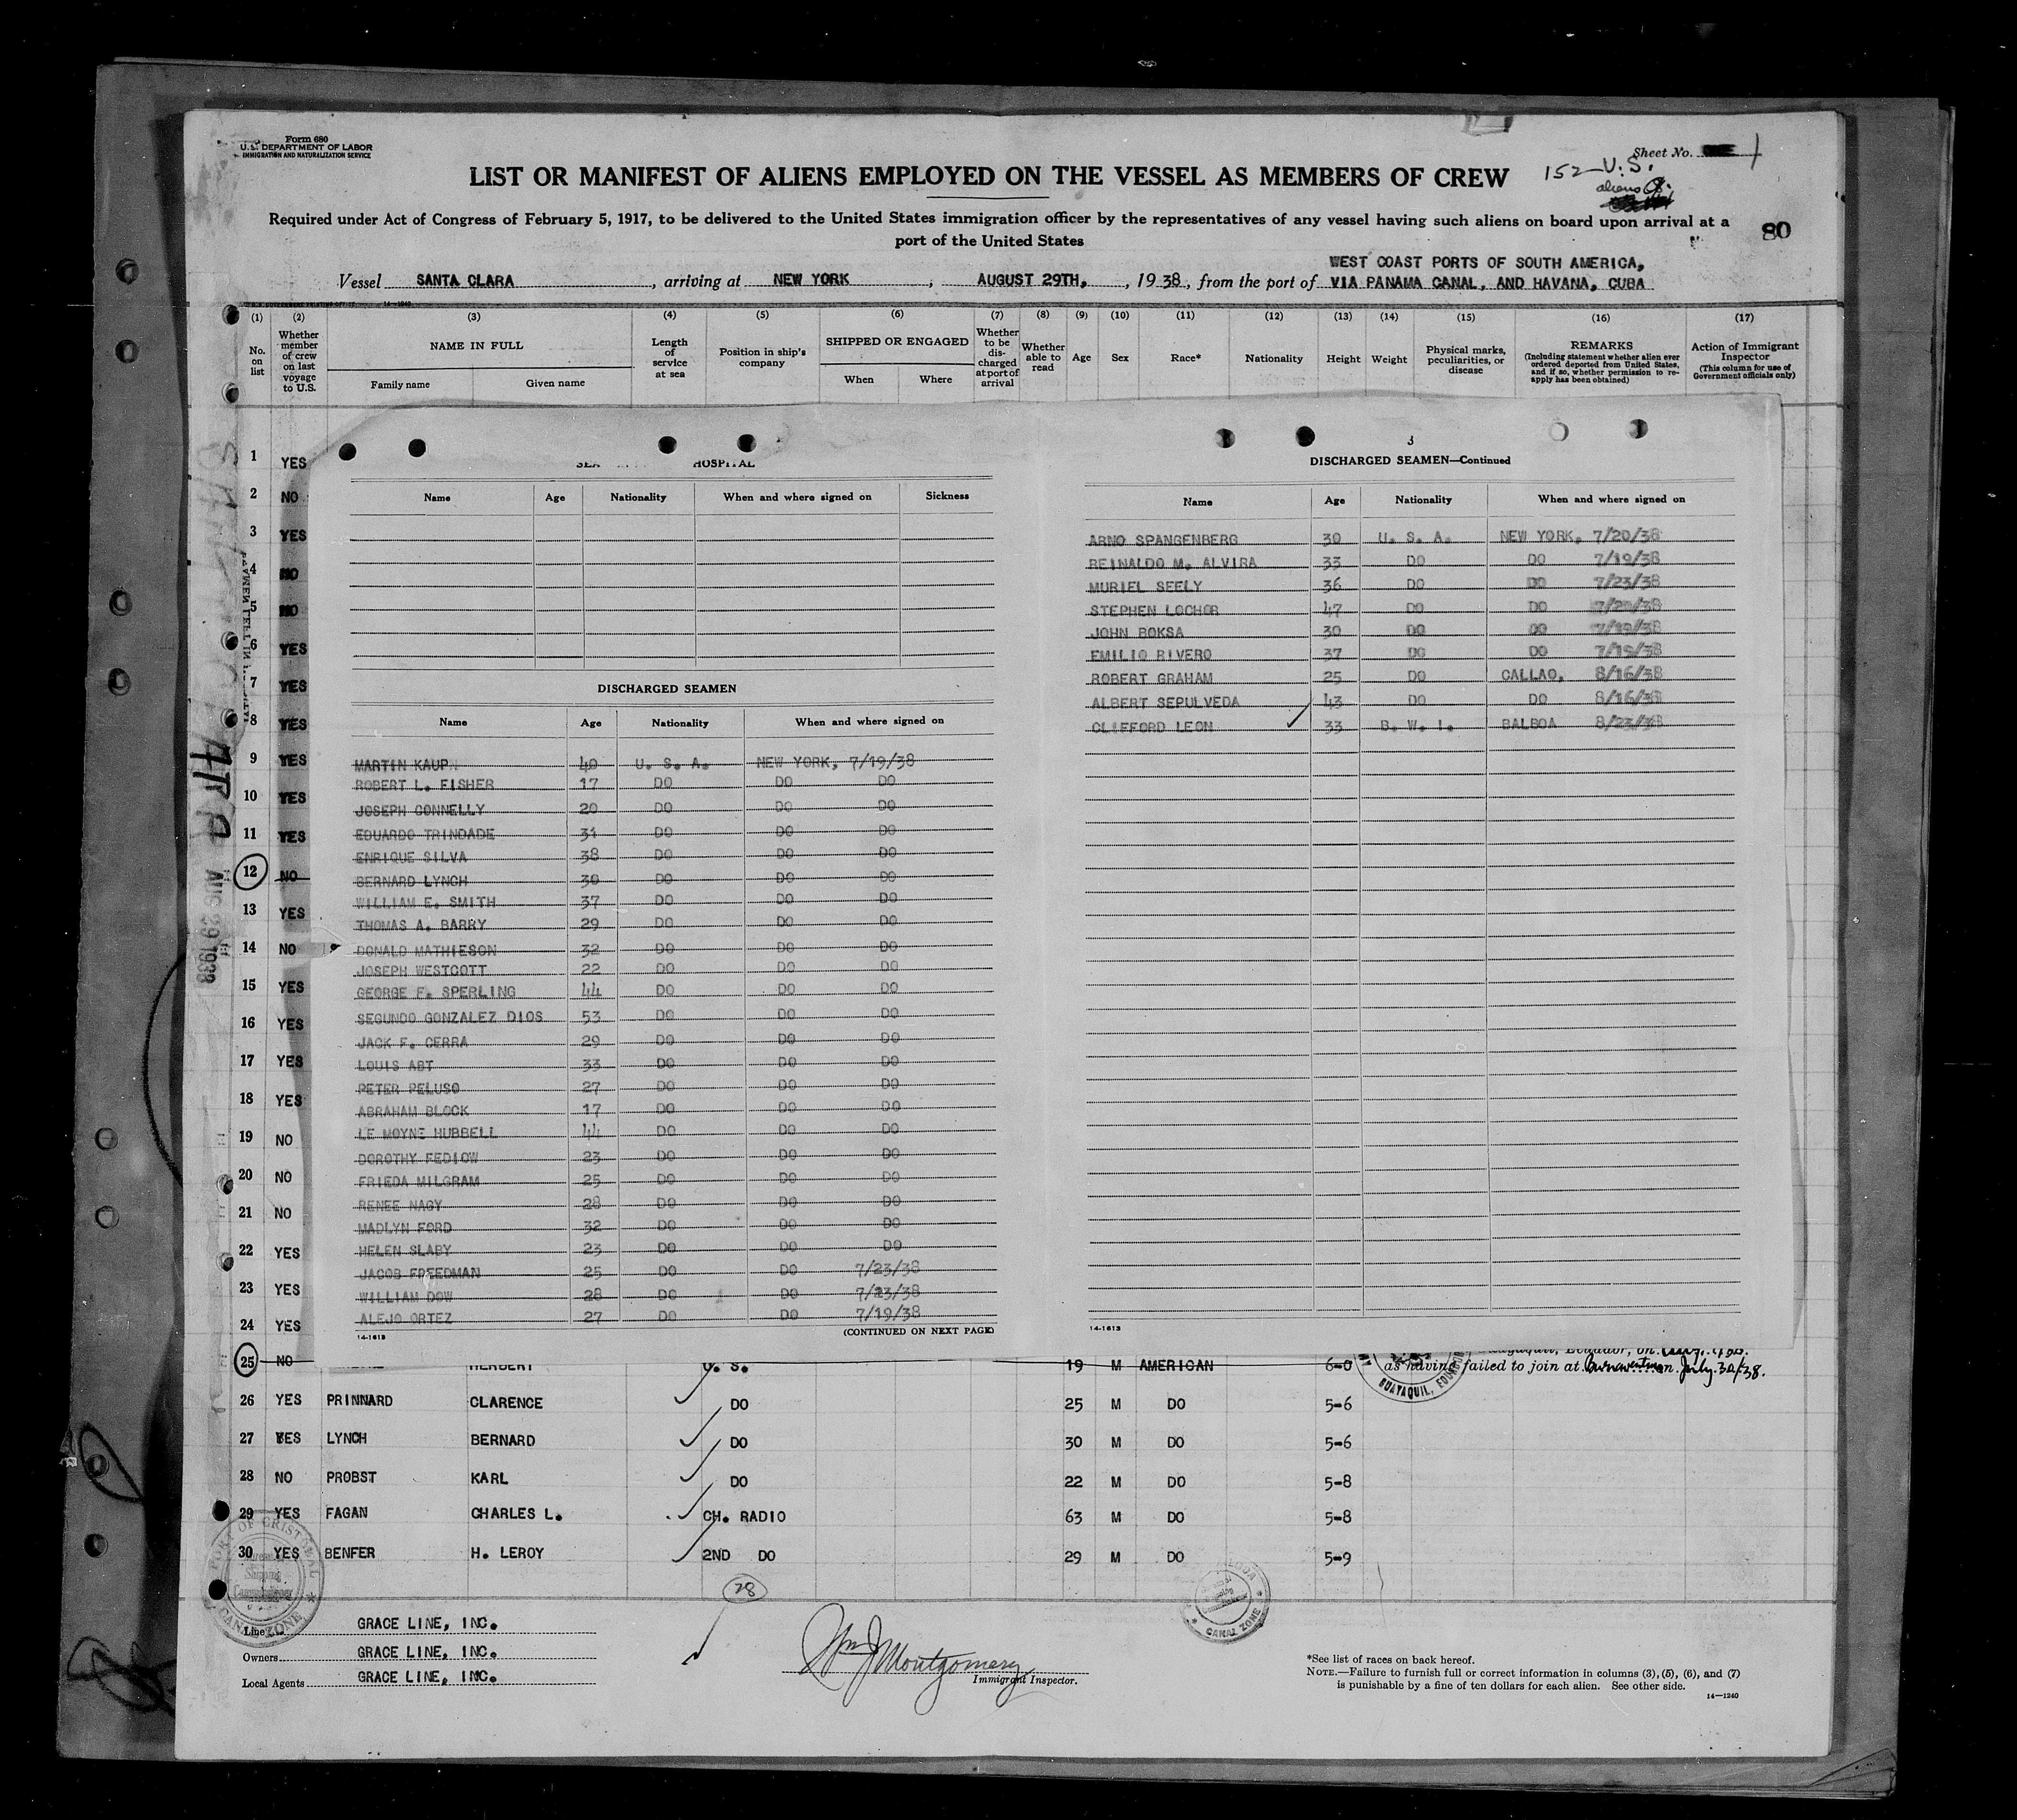 Form 680
U.S. DEPARTMENT OF LABOR
IMMIGRATION AND NATURALIZATION SERVICE
Sheet No. 1
152 U.S.
aliens
LIST OR MANIFEST OF ALIENS EMPLOYED ON THE VESSEL AS MEMBERS OF CREW
Required under Act of Congress of February 5, 1917, to be delivered to the United States immigration officer by the representatives of any vessel having such aliens on board upon arrival at a
port of the United States
80
WEST COAST PORTS OF SOUTH AMERICA,
Vessel SANTA CLARA, arriving at NEW YORK, AUGUST 29TH, , 1938, from the port of VIA PANAMA CANAL, AND HAVANA, CUBA
(1) (2) (3) (4) (5) (6) (7) (8) (9) (10) (11) (12) (13) (14) (15) (16) (17)
No. on list
Whether member of crew on last voyage to U.S.
NAME IN FULL
Family name
Given name
Length of service at sea
Position in ship's company
SHIPPED OR ENGAGED
When
Where
Whether to be discharged at port of arrival
Whether able to read
Age
Sex
Race*
Nationality
Height
Weight
Physical marks, peculiarities, or disease
REMARKS
(Including statement whether alien ever ordered deported from United States, and if so, whether permission to reapply has been obtained)
Action of Immigrant Inspector
(This column for use of Government officials only)
1 YES
2 NO
3 YES
4 NO
5 NO
6 YES
7 YES
8 YES
9 YES
10 YES
11 YES
12 NO
13 YES
14 NO
15 YES
16 YES
17 YES
18 YES
19 NO
20 NO
21 NO
22 YES
23 YES
24 YES
AUG 29 1938
HOSPITAL
Name Age Nationality When and where signed on Sickness
DISCHARGED SEAMEN
Name Age Nationality When and where signed on
MARTIN KAUP 40 U. S. A. NEW YORK, 7/19/38
ROBERT L. FISHER 17 DO DO DO
JOSEPH CONNELLY 20 DO DO DO
EDUARDO TRINDADE 31 DO DO DO
ENRIQUE SILVA 38 DO DO DO
BERNARD LYNCH 30 DO DO DO
WILLIAM E. SMITH 37 DO DO DO
THOMAS A. BARRY 29 DO DO DO
DONALD MATHIESON 32 DO DO DO
JOSEPH WESTCOTT 22 DO DO DO
GEORGE F. SPERLING 44 DO DO DO
SEGUNDO GONZALEZ DIOS 53 DO DO DO
JACK F. CERRA 29 DO DO DO
LOUIS ABT 33 DO DO DO
PETER PELUSO 27 DO DO DO
ABRAHAM BLOCK 17 DO DO DO
LE MOYNE HUBBELL 44 DO DO DO
DOROTHY FEDIOW 23 DO DO DO
FRIEDA MILGRAM 25 DO DO DO
RENEE NAGY 28 DO DO DO
MADLYN FORD 32 DO DO DO
HELEN SLABY 23 DO DO DO
JACOB FREEDMAN 25 DO DO 7/23/38
WILLIAM DOW 28 DO DO 7/23/38
ALEJO ORTEZ 27 DO DO 7/19/38
14-1613 (CONTINUED ON NEXT PAGE)
3
DISCHARGED SEAMEN—Continued
Name Age Nationality When and where signed on
ARNO SPANGENBERG 30 U. S. A. NEW YORK, 7/20/38
REINALDO M. ALVIRA 33 DO DO 7/19/38
MURIEL SEELY 36 DO DO 7/23/38
STEPHEN LOCHOR 47 DO DO 7/20/38
JOHN BOKSA 30 DO DO 7/19/38
EMILIO RIVERO 37 DO DO 7/19/38
ROBERT GRAHAM 25 DO CALLAO, 8/16/38
ALBERT SEPULVEDA 43 DO DO 8/16/38
CLIFFORD LEON 33 B. W. I. BALBOA 8/23/38
14-1613
25 NO HERBERT U. S. 19 M AMERICAN 6-0 as having failed to join at July 30/38.
GUAYAQUIL,
26 YES PRINNARD CLARENCE DO 25 M DO 5-6
27 YES LYNCH BERNARD DO 30 M DO 5-6
28 NO PROBST KARL DO 22 M DO 5-8
29 YES FAGAN CHARLES L. CH. RADIO 63 M DO 5-8
30 YES BENFER H. LEROY 2ND DO 29 M DO 5-9
28
PORT OF CRISTOBAL
Shipping Commissioner
CANAL ZONE
CANAL ZONE
Line GRACE LINE, INC.
Owners GRACE LINE, INC.
Local Agents GRACE LINE, INC.
Wm J Montgomery
Immigrant Inspector.
*See list of races on back hereof.
NOTE.—Failure to furnish full or correct information in columns (3), (5), (6), and (7)
is punishable by a fine of ten dollars for each alien. See other side.
14—1240